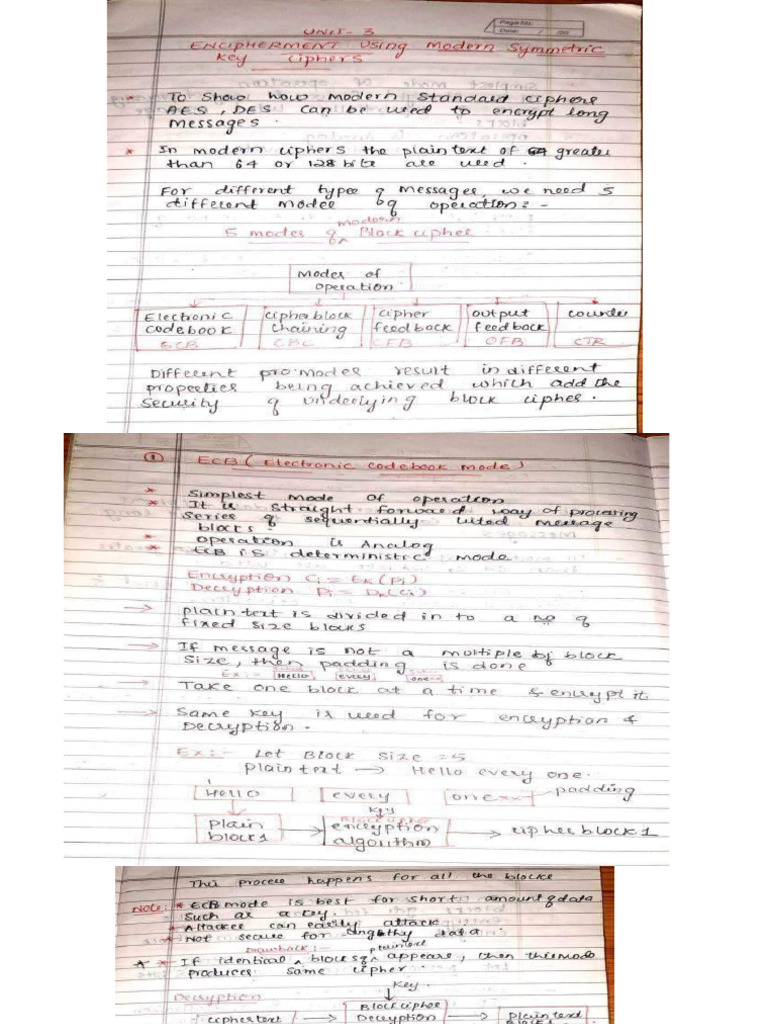 Page No.
Date: / /20
UNIT-3
ENCIPHERMENT Using Modern Symmetric
Key Ciphers
* To Show how modern Standard ciphers
AES, DES can be used to encrypt long
messages.
* In modern ciphers the plain text of 64 greater
than 64 or 128 bits are used.
For different types of messages, we need 5
different modes of operation:-
5 modes of modern Block cipher
Modes of
operation
Electronic codebook ECB
cipherblock chaining CBC
cipher feedback CFB
output feedback OFB
counter CTR
Different pro.modes result in different
properties being achieved which add the
security of underlying block cipher.
① ECB (Electronic codebook mode)
* Simplest mode of operation
* It is straight forward way of processing
series of sequentially listed message
blocks.
* operation is Analog
* ECB is deterministic mode
Encryption Ci = EK (Pi)
Decryption Pi = DK (Ci)
→ plain text is divided in to a no of
fixed size blocks
→ If message is not a multiple of block
size, then padding is done
Ex:- Hello every one
→ Take one block at a time & encrypt it
→ Same key is used for encryption &
Decryption.
Ex:- Let Block size = 5
plain text → Hello every one.
Hello every onexx padding
key
plain block1 → Block cipher encryption algorithm → cipher block 1
This process happens for all the blocks
Note: * ECB mode is best for short amount of data
such as a key.
* Attacker can easily attack
* Not secure for lengthy data.
Drawback:-
* * If identical blocks of plaintext appears, then this mode
produces same cipher.
Key
Decryption
ciphertext → Block cipher Decryption → Plain text
Block 1